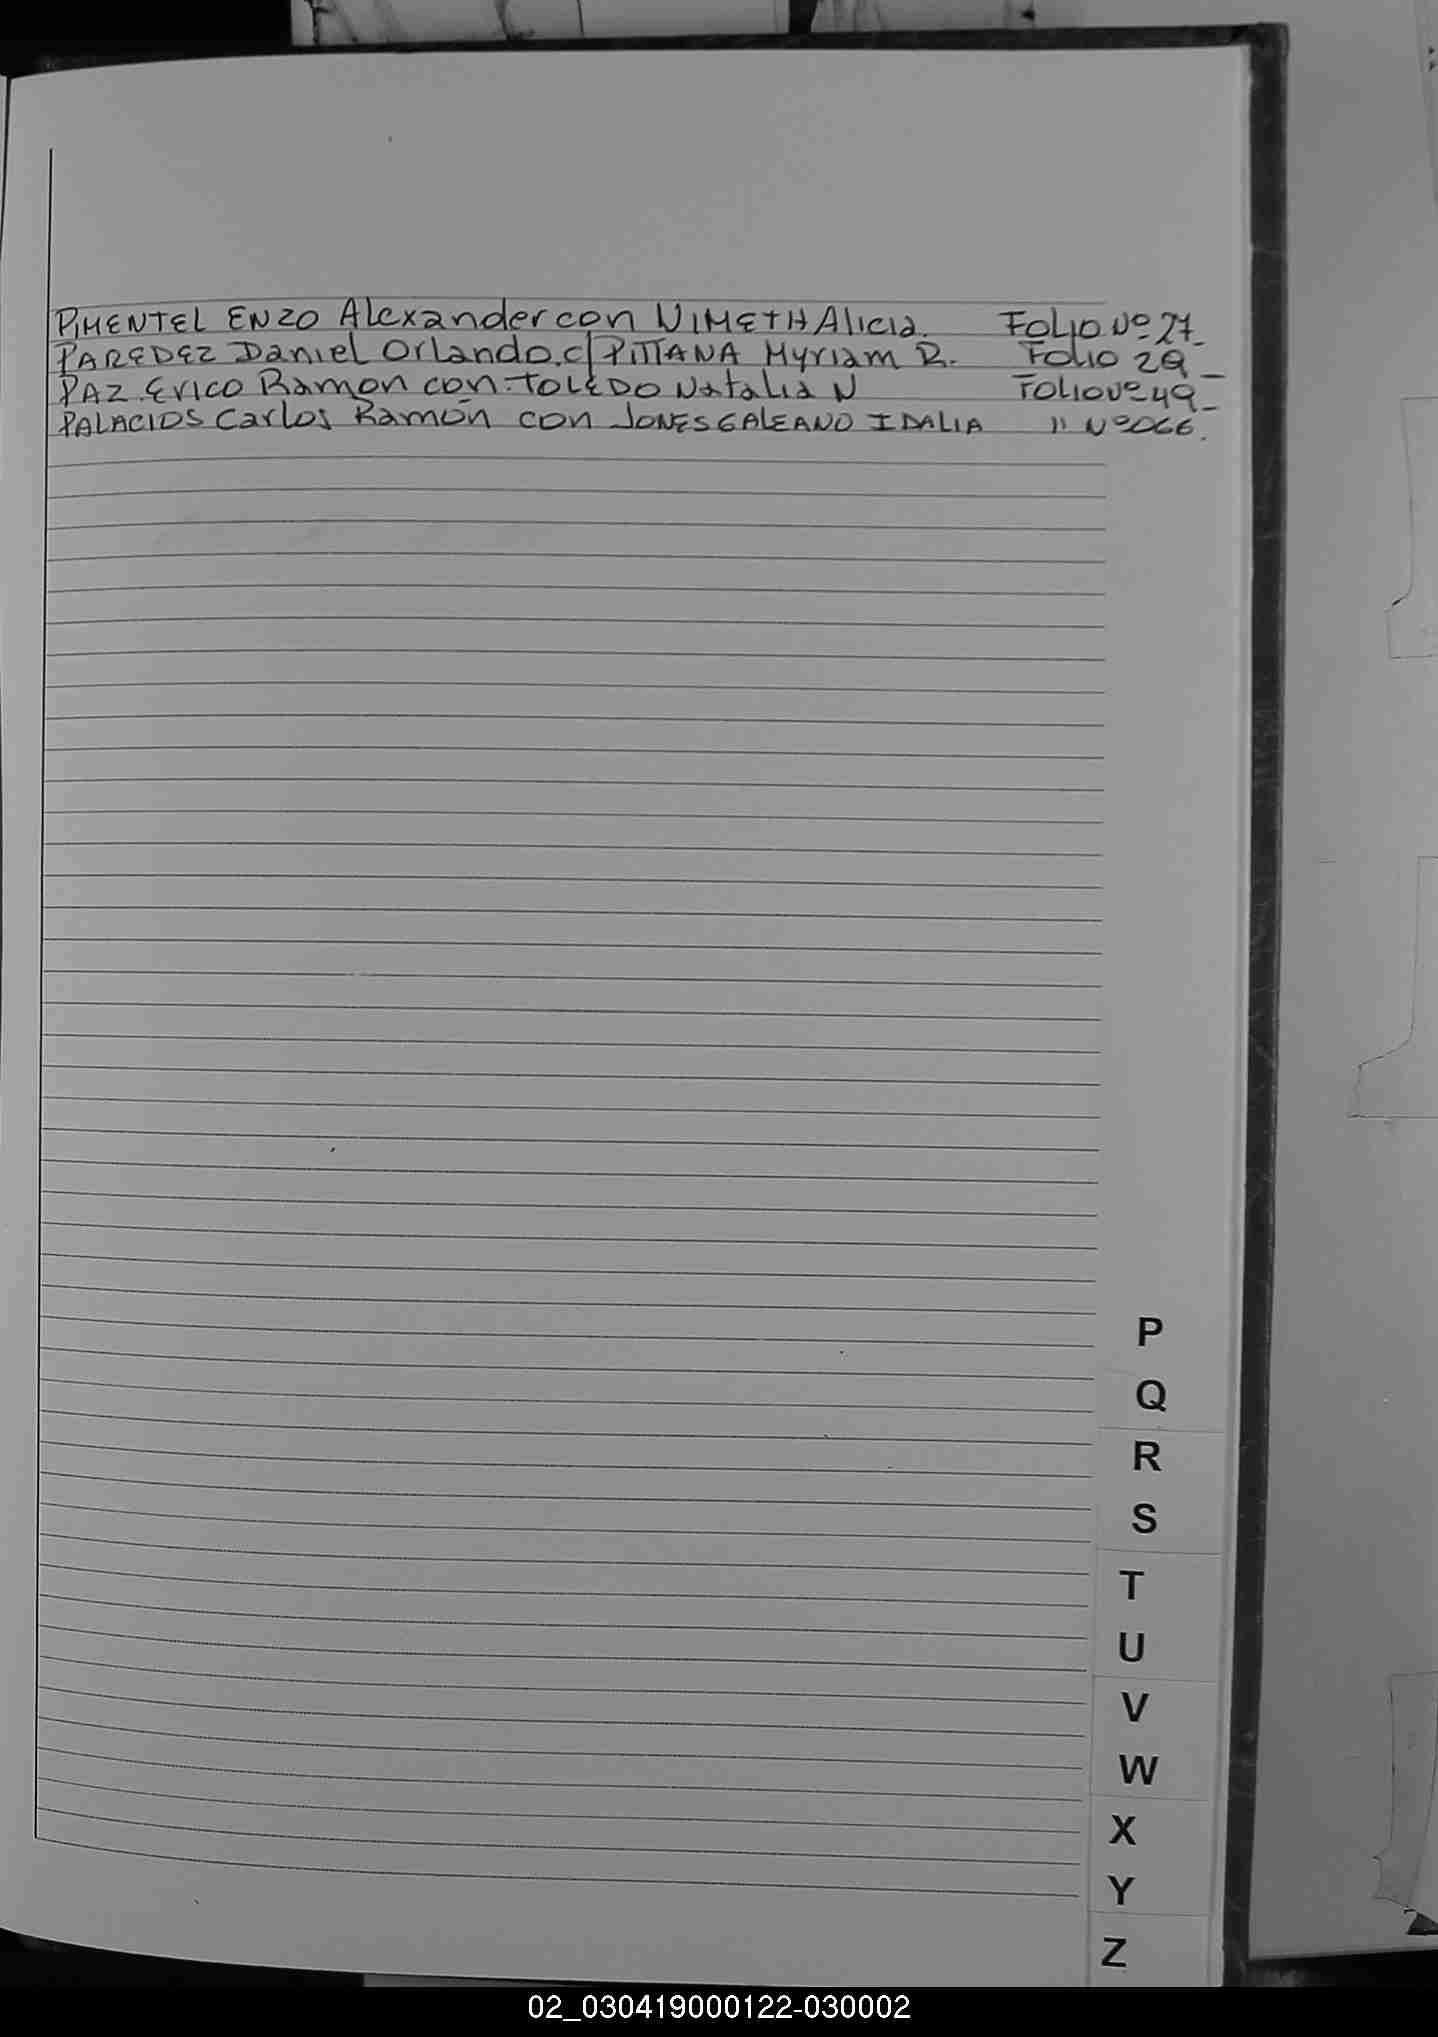 PIMENTEL ENZO Alexander con NIMETH Alicia. Folio Nº 27_
PAREDEZ Daniel Orlando. c/ PITTANA Myriam R. Folio 29_
PAZ. Erico Ramon con TOLEDO Natalia N Folio Nº 49_
PALACIOS Carlos Ramón con JONES GALEANO IDALIA " Nº 066.
P
Q
R
S
T
U
V
W
X
Y
Z
02_030419000122-030002